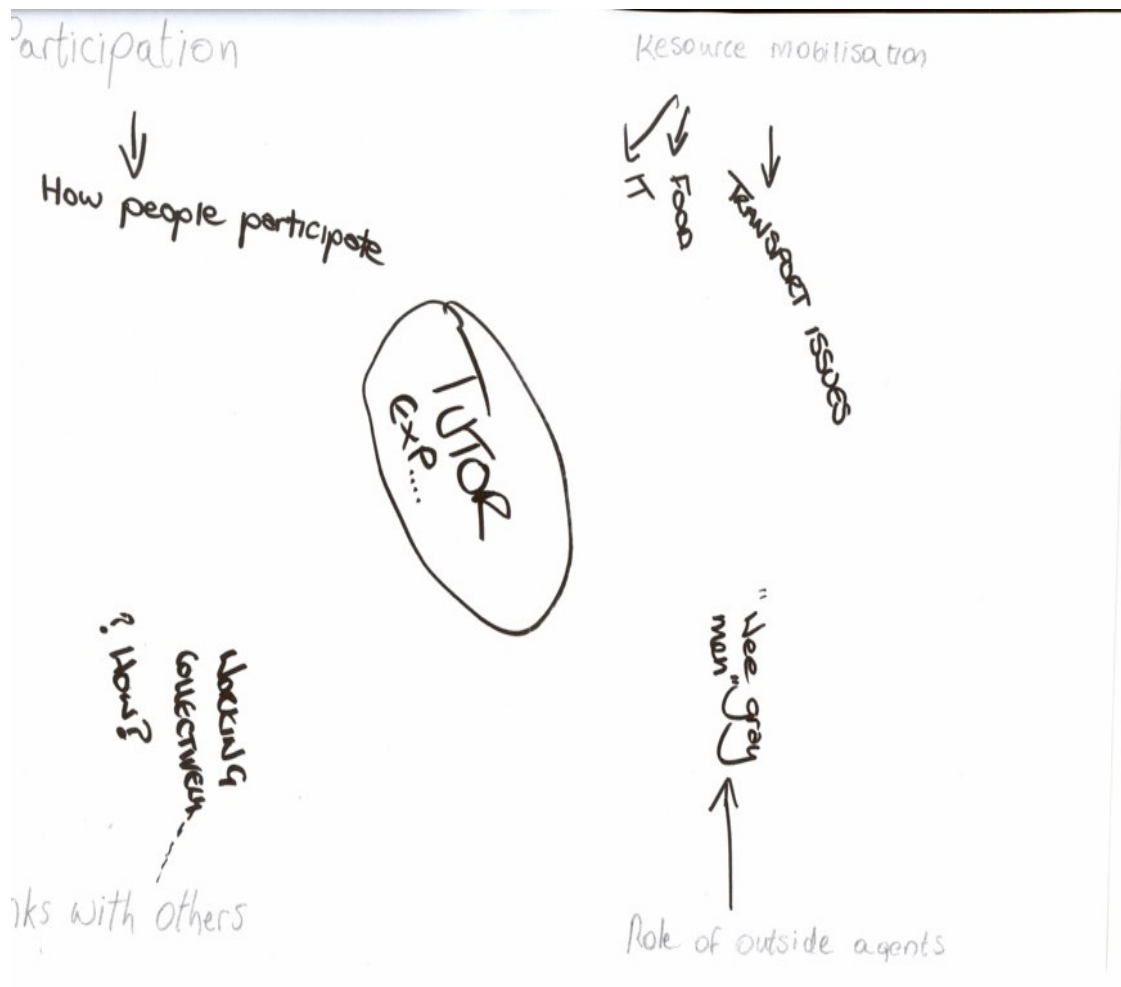 Participation
How people participate
Resource mobilisation
IT
FOOD
TRANSPORT ISSUES
TUTOR
EXP.....
"Wee gray
man"
WORKING
COLLECTIVELY
? HOW?
nks with others
Role of outside agents